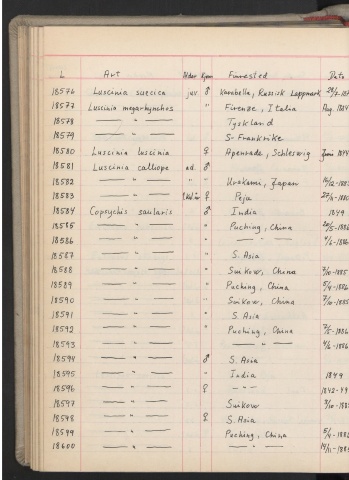 L Art Alder Kjønn Funnsted Dato
18576 Luscinia suecica juv. ♂ Karabella, Russisk Lappmark
18577 Luscinia megarhynchos " Firenze, Italia Aug. 1884
18578 — " — Tyskland
18579 — " — S-Frankrike
18580 Luscinia luscinia ♀ Apenrade, Schleswig Juni
18581 Luscinia calliope ad. ♂
18582 — " — " " Urakami, Japan
18583 — " — ♀ Peja
18584 Copsychis saularis ♂ India 1849
18585 — " — " Puching, China 20/5-1886
18586 — " — " — " —
18587 — " — " S. Asia
18588 — " — " Suikow, China 3/10-1885
18589 — " — " Puching, China 5/4-1886
18590 — " — " Suikow, China 7/10-1885
18591 — " — " S. Asia
18592 — " — " Puching, China
18593 — " — — " —
18594 — " — ♂ S. Asia
18595 — " — " India 1849
18596 — " — ♀ — " — 1842-49
18597 — " — Suikow
18598 — " — ♀ S. Asia
18599 — " — Puching, China
18600 — " — — " —